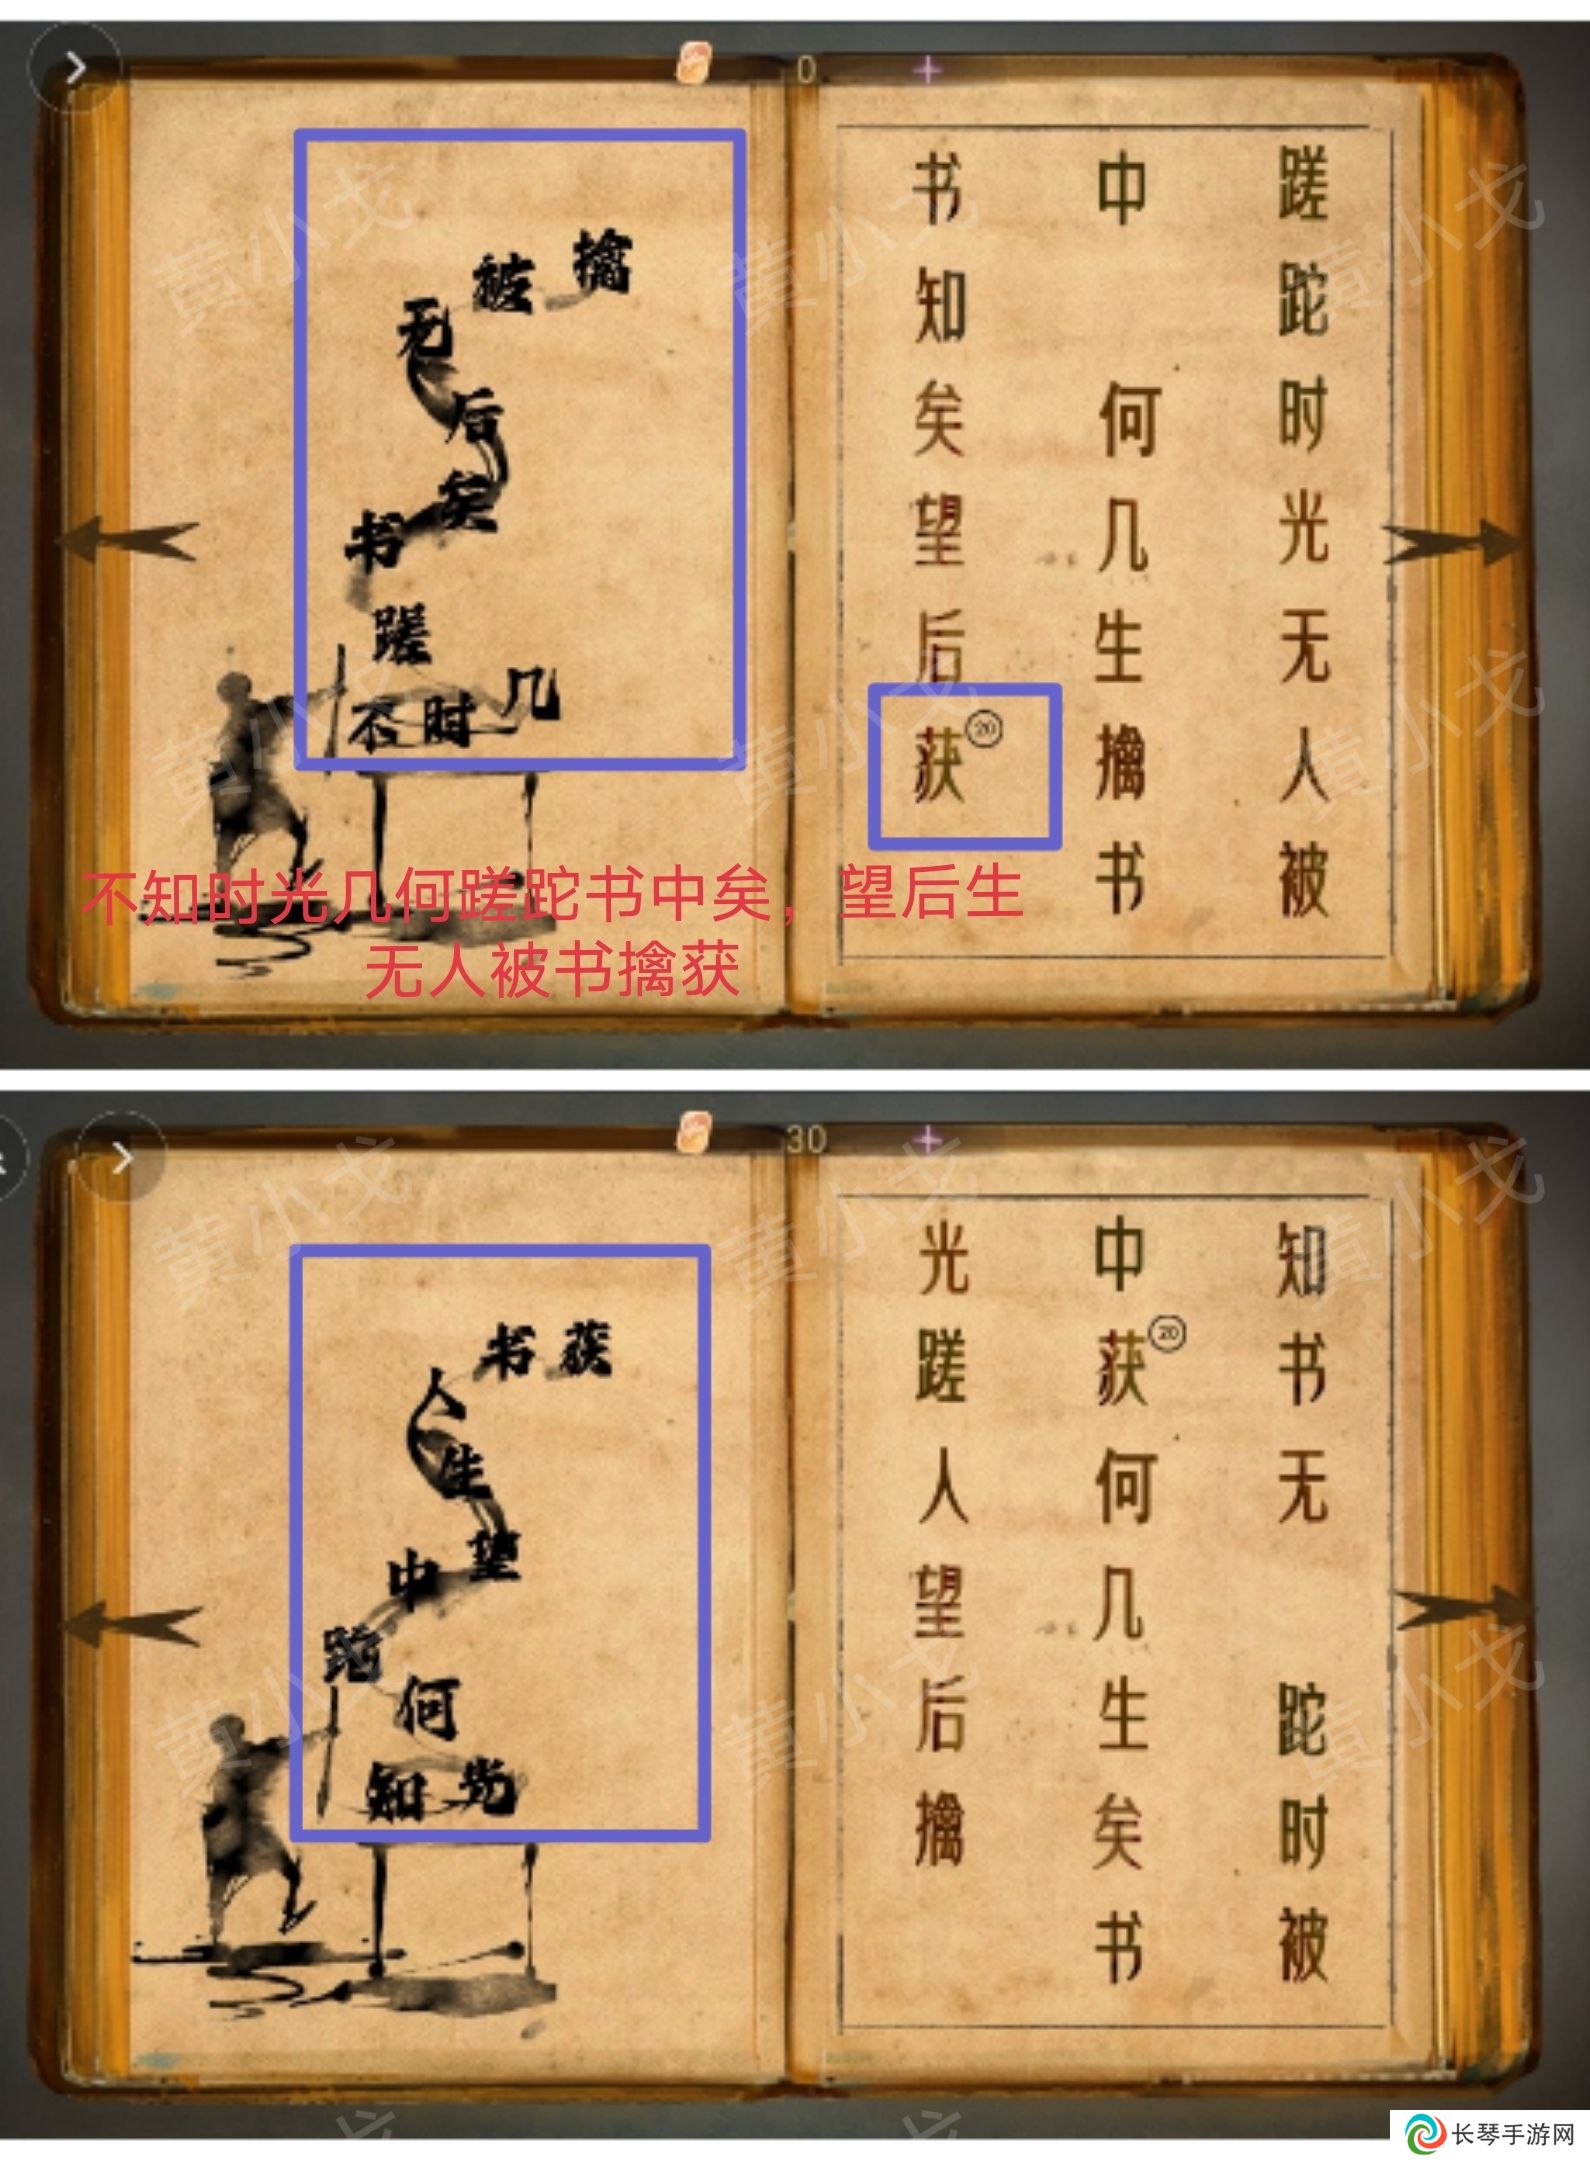 0
擒
被
无
后
矣
书
蹉
不时几
蹉跎时光无人被
中何几生擒书
书知矣望后获
20
不知时光几何蹉跎书中矣，望后生
无人被书擒获
30
书获
人
生
望
中
跎
何
知光
知书无跎时被
中获何几生矣书
20
光蹉人望后擒
黄小戈
长琴手游网